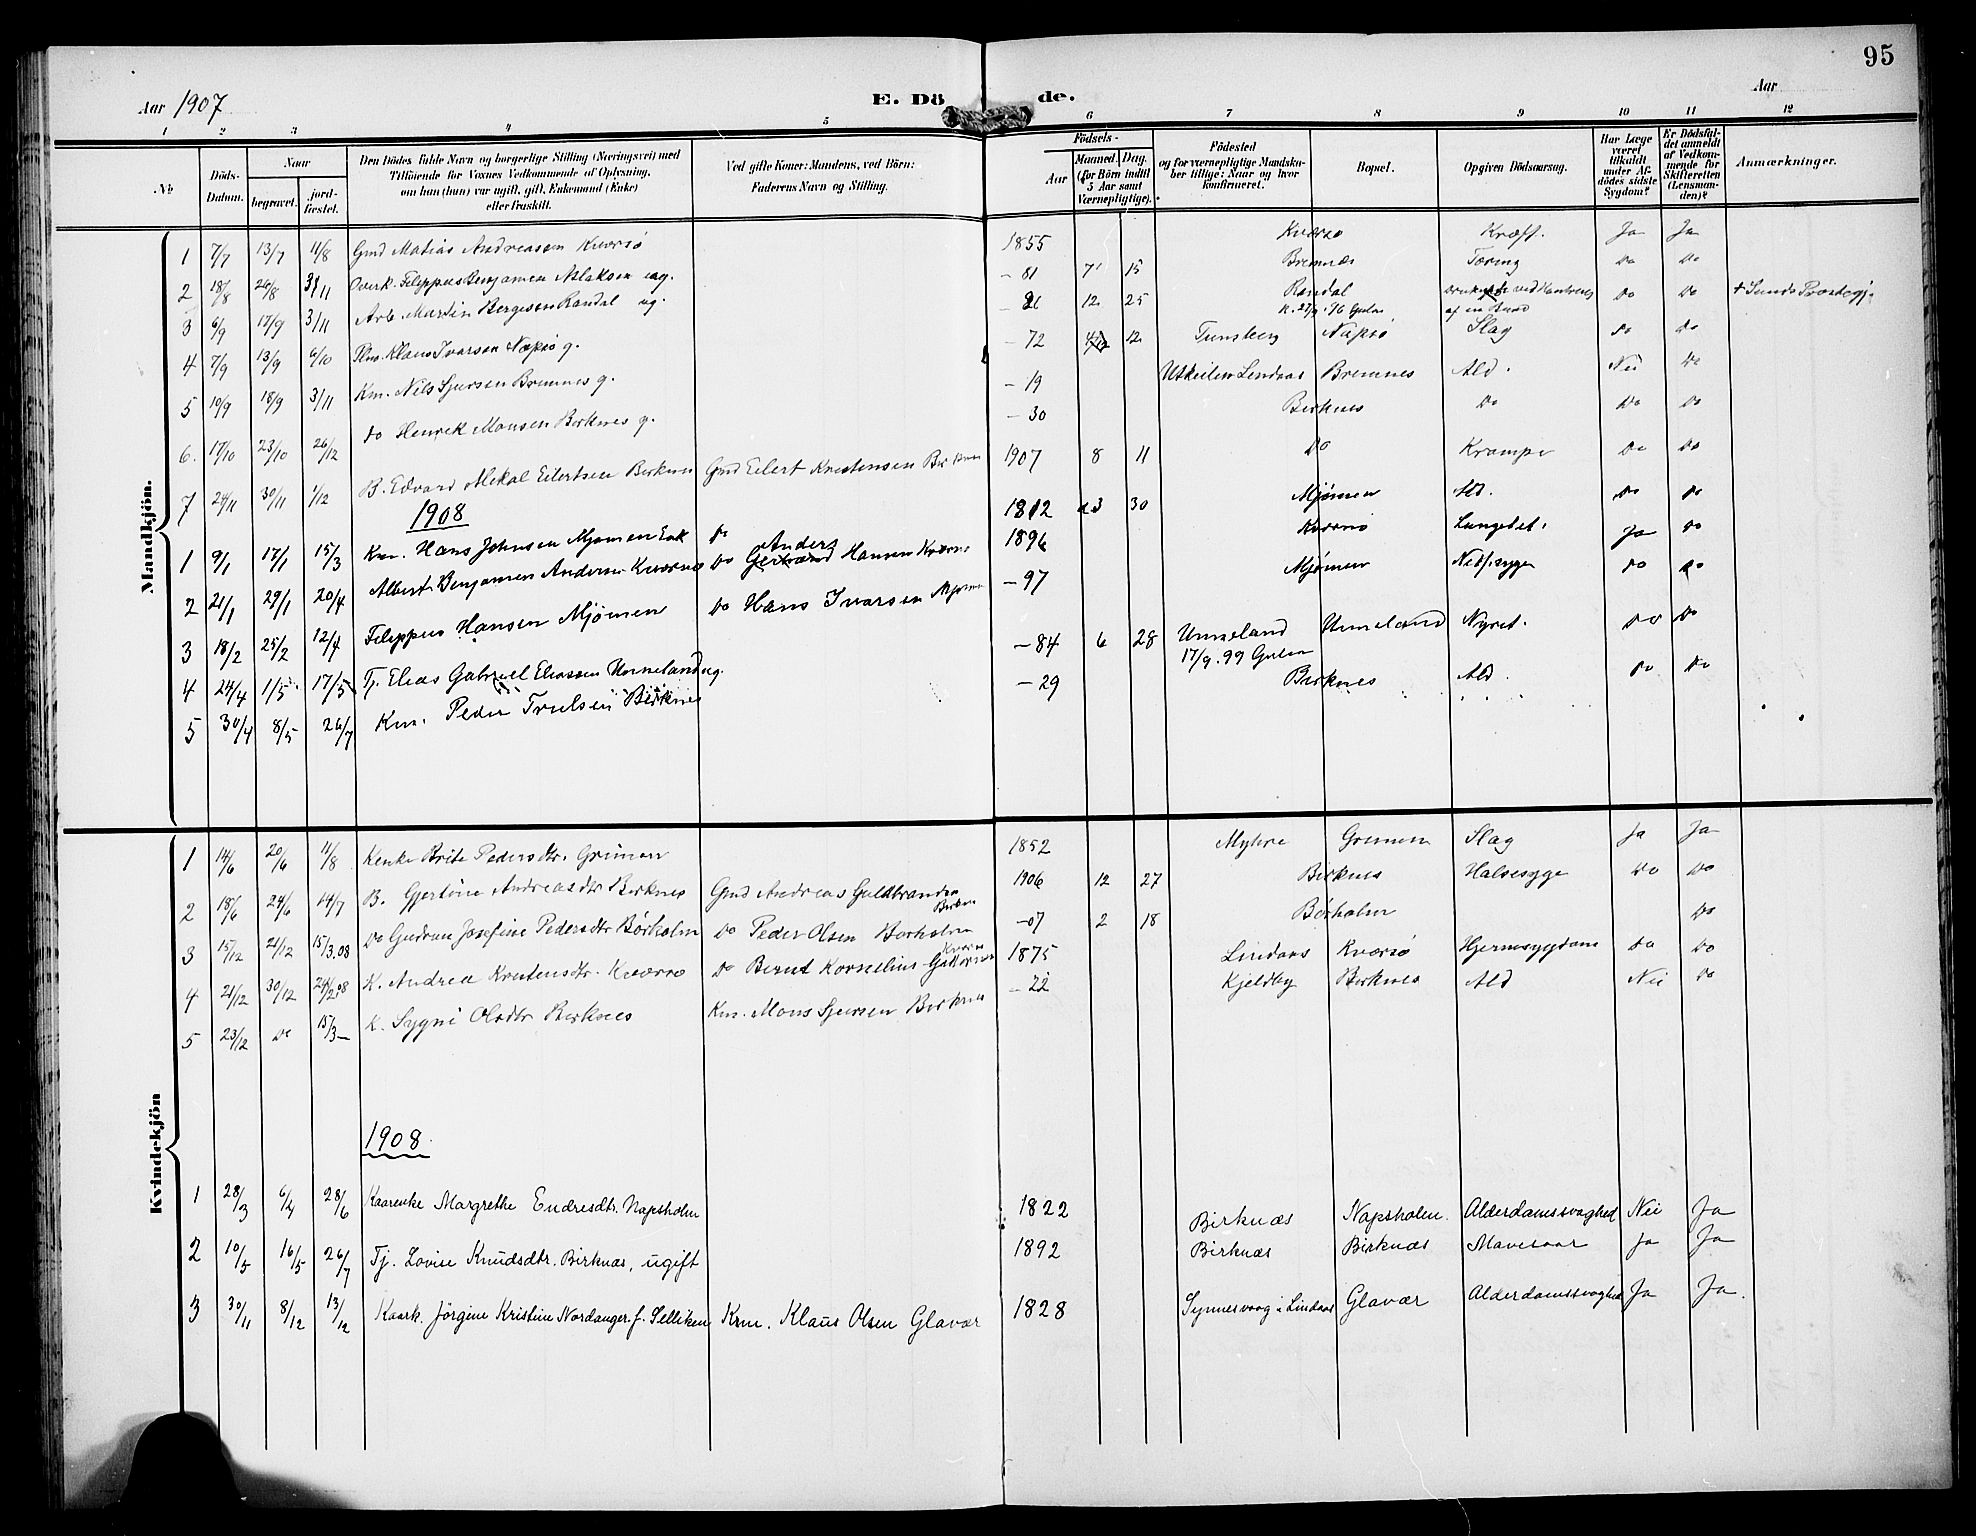 95
Aar 1907
E. Dö de.
Aar
1 2 3 4 5 6 7 8 9 10 11 12
№
Döds-Datum.
Naar
begravet.
jord-fæstet.
Den Dödes fulde Navn og borgerlige Stilling (Næringsvei) med
Tilföiende for Voxnes Vedkommende af Oplysning,
om han (hun) var ugift, gift, Enkemand (Enke)
eller fraskilt.
Ved gifte Koner: Mandens, ved Börn:
Faderens Navn og Stilling.
Födsels-
Aar
Maaned. Dag.
(for Börn indtil 5 Aar samt Værnepligtige).
Födested
og for værnepligtige Mandska-
ber tillige: Naar og hvor
konfirmeret.
Bopæl.
Opgiven Dödsaarsag.
Har Læge været tilkaldt under Af-dödes sidste Sygdom?
Er Dödsfal-det anmeldt af Vedkom-mende for Skifteretten (Lensman-den)?
Anmærkninger.
Mandkjön.
1 7/7 13/7 11/8 Gmd Matias Andreasen Kværsö 1855 Kværsö Kræft. Ja Ja
2 18/8 26/8 3/11 Filippus Benjamen Aslaksen ug. – 81 7 15 Bremnæs Tæring Do Do
3 6/9 17/9 3/11 Arb. Martin Bergesen Randal ug. 12 25 Randal Do Do
4 7/9 13/9 6/10 Klaus Ivarsen Næpsö g. – 72 12 Tunsberg Næpsö Slag Do Do
5 10/9 18/9 3/11 Km. Nils Sjursen Bremnes g. – 19 Lindaas Bremnes Ald. Nei Do
6. 17/10 23/10 26/12 do Henrik Monsen Birknes g. – 30 Birknes Do Do Do
7 24/11 30/11 1/12 B. Edvard Mekal Eilertsen Birknes Gmd Eilert Kristensen Birknes 1907 8 11 Do Krampe Do Do
1908
1 9/1 17/1 15/3 Km. Hans Johnsen Mjømen Enk do 1812 3 30 Mjømen Ald. Do Do
2 21/1 29/1 20/4 Albert Benjamen Andersen Kværnø Do Anders Hansen Kværnø 1896 Kværnø Lungebet. Ja Do
3 18/2 25/2 12/4 Filippus Hansen Mjømen Do Hans Ivarsen Mjømen – 97 Mjømen Do Do
4 24/4 1/5 17/5 Tj. Elias Gabriel Eliassen Unneland ug. – 84 6 28 Unneland 17/9. 99 Gulen Unneland Nyret. Do Do
5 30/4 8/5 26/7 Km. Peder Trulsen Birknes – 29 Birknes Ald. Do Do
Kvindekjön
1 14/6 20/6 11/8 Kenke Brite Pedersdtr. Grimen 1852 Myhre Gremen Slag Ja Ja
2 18/6 24/6 14/7 B. Gjertine Andreasdtr Birknes Gmd Andreas Guldbrandsen Birknes 1906 12 27 Birknes Halsesyge Do Do
3 15/12 21/12 15/3.08 Do Gudrun Josefine Pedersdtr Børholm Do Peder Olsen Børholm – 07 2 18 Børholm Do
4 21/12 30/12 24/2.08 K. Andrea Kristensdtr. Kværsø Do Bernt Kornelius 1875 Lindaas Kværsø Hjernesygdom Do Do
5 23/12 Do 15/3 – K. Sygni Olsdtr Birknes Km. Mons Sjursen Birknes – 22 Kjeldby Birknes Ald Nei Do
1908.
1 28/3 6/4 28/6 Kaarenke Margrethe Endresdtr. Napsholm 1822 Birknæs Napsholm. Alderdomssvaghed Nei Ja
2 10/5 16/5 26/7 Tj. Lovise Knudsdtr. Birknæs, ugift 1892 Birknæs Birknæs Mavesaar Ja Ja
3 30/11 8/12 13/12 Kaark. Jörgine Kristine Nordanger f. Selliken Krm. Klaus Olsen Glavær 1828 Synnesvaag i Lindaas Glavær Alderdomssvaghed Ja Ja.